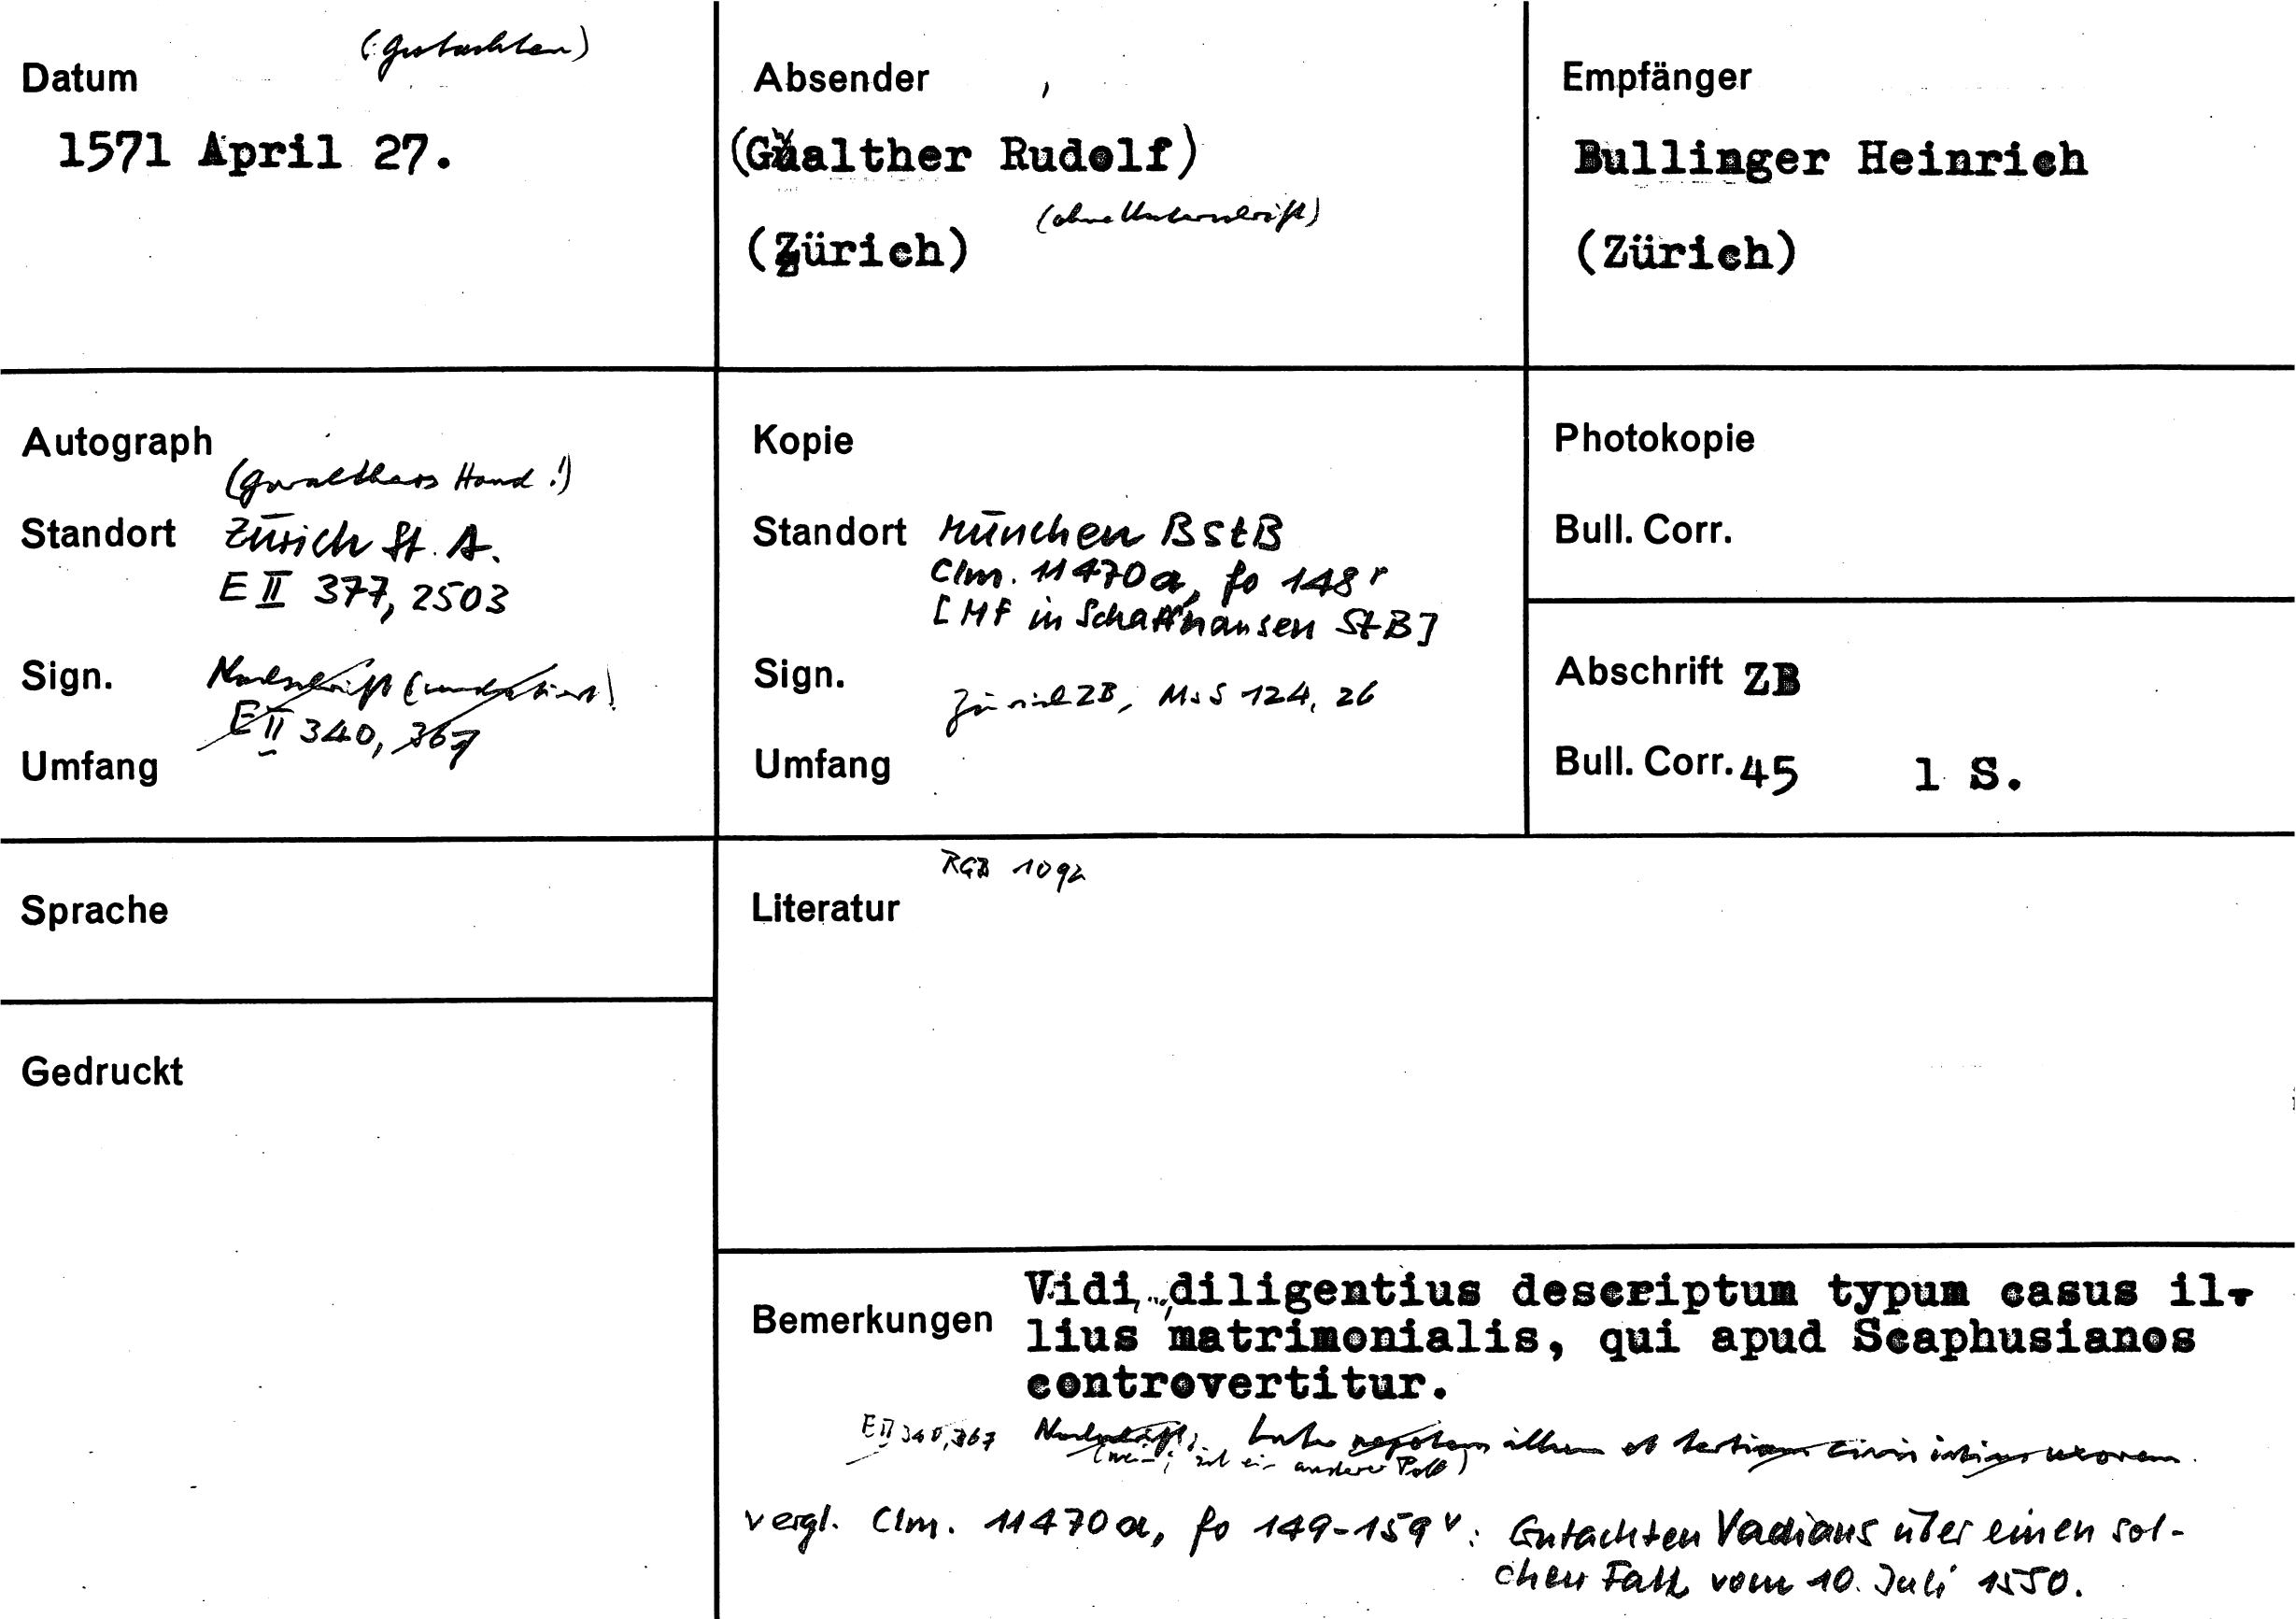 Datum
(: Gutachten)
1571 April 27.
Absender
(Gwalther Rudolf)
(ohne Unterschrift)
(Zürich)
Empfänger
Bullinger Heinrich
(Zürich)
Autograph
(Gwalthers Hand !)
Standort Zürich St. A.
E II 377, 2503
Sign. Nachschrift (undatiert)
E II 340, 367
Umfang
Kopie
Standort München BStB
Clm. 11470a, fo 148 r
[MF in Schaffhausen StB]
Sign.
Zürich ZB, Ms S 124, 26
Umfang
Photokopie
Bull. Corr.
Abschrift ZB
Bull. Corr. 45 1 S.
Sprache
Gedruckt
RGB 1092
Literatur
Bemerkungen
Vidi diligentius descriptum typum casus il-
lius matrimonialis, qui apud Scaphusianos
controvertitur.
E II 340, 367 Nachschrift: illum et uxorem.
vergl. Clm. 11470a, fo 149-159 v: Gutachten Vadians über einen sol-
chen Fall vom 10. Juli 1550.